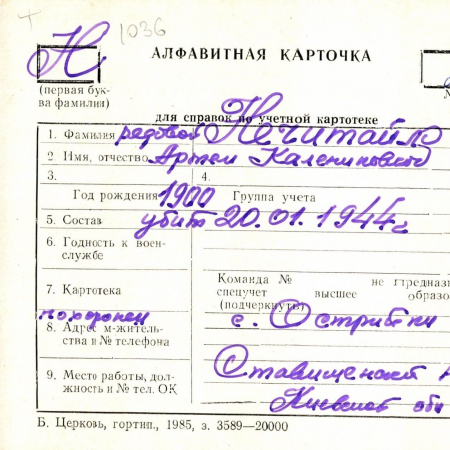 Н 1036
АЛФАВИТНАЯ КАРТОЧКА
(первая бук-
ва фамилии)
для справок по учетной картотеке
1. Фамилия рядовой Нечитайло
2. Имя, отчество Артем Каленикович
3. 4.
Год рождения 1900 Группа учета
5. Состав убит 20.01.1944г
6. Годность к воен-
службе
Команда № не предназ
7. Картотека спецучет высшее образо
(подчеркнуть)
похоронен с. Острийки
8. Адрес м-житель-
ства и № телефона
9. Место работы, дол-
жность и № тел. ОК
Ставищенский
Киевской обл
Б. Церковь, гортип., 1985, з. 3589—20000